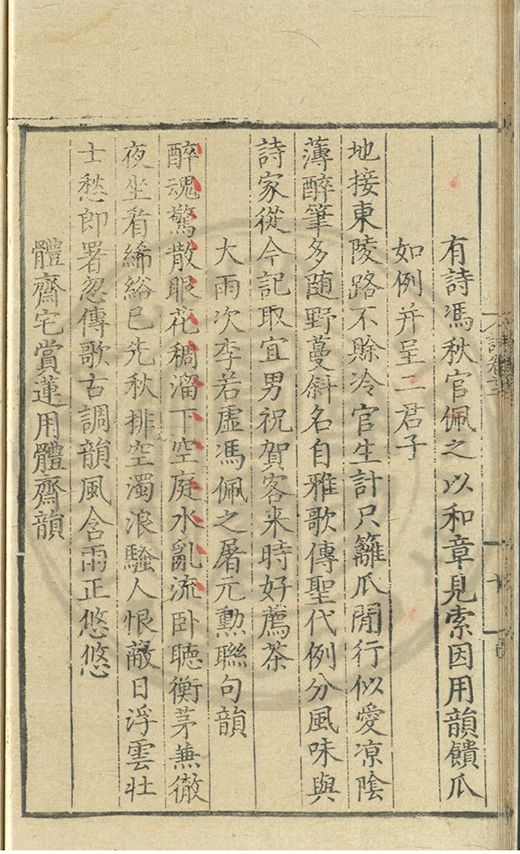 有詩馮秋官佩之以和章見索因用韻饋瓜
如例并呈二君子
地接東陵路不賖冷官生計只籬瓜閒行似愛凉陰
薄醉筆多随野蔓斜名自雅歌傳聖代例分風味與
詩家從今記取宜男祝賀客來時好薦茶
大雨次李若虛馮佩之屠元勳聯句韻
醉魂驚散眼花稠溜下空庭水亂流卧聴衡茅兼徹
夜坐看絺綌已先秋排空濁浪騷人恨蔽日浮雲壮
士愁郎署忽傳歌古調韻風含雨正悠悠
體齋宅賞蓮用體齋韻